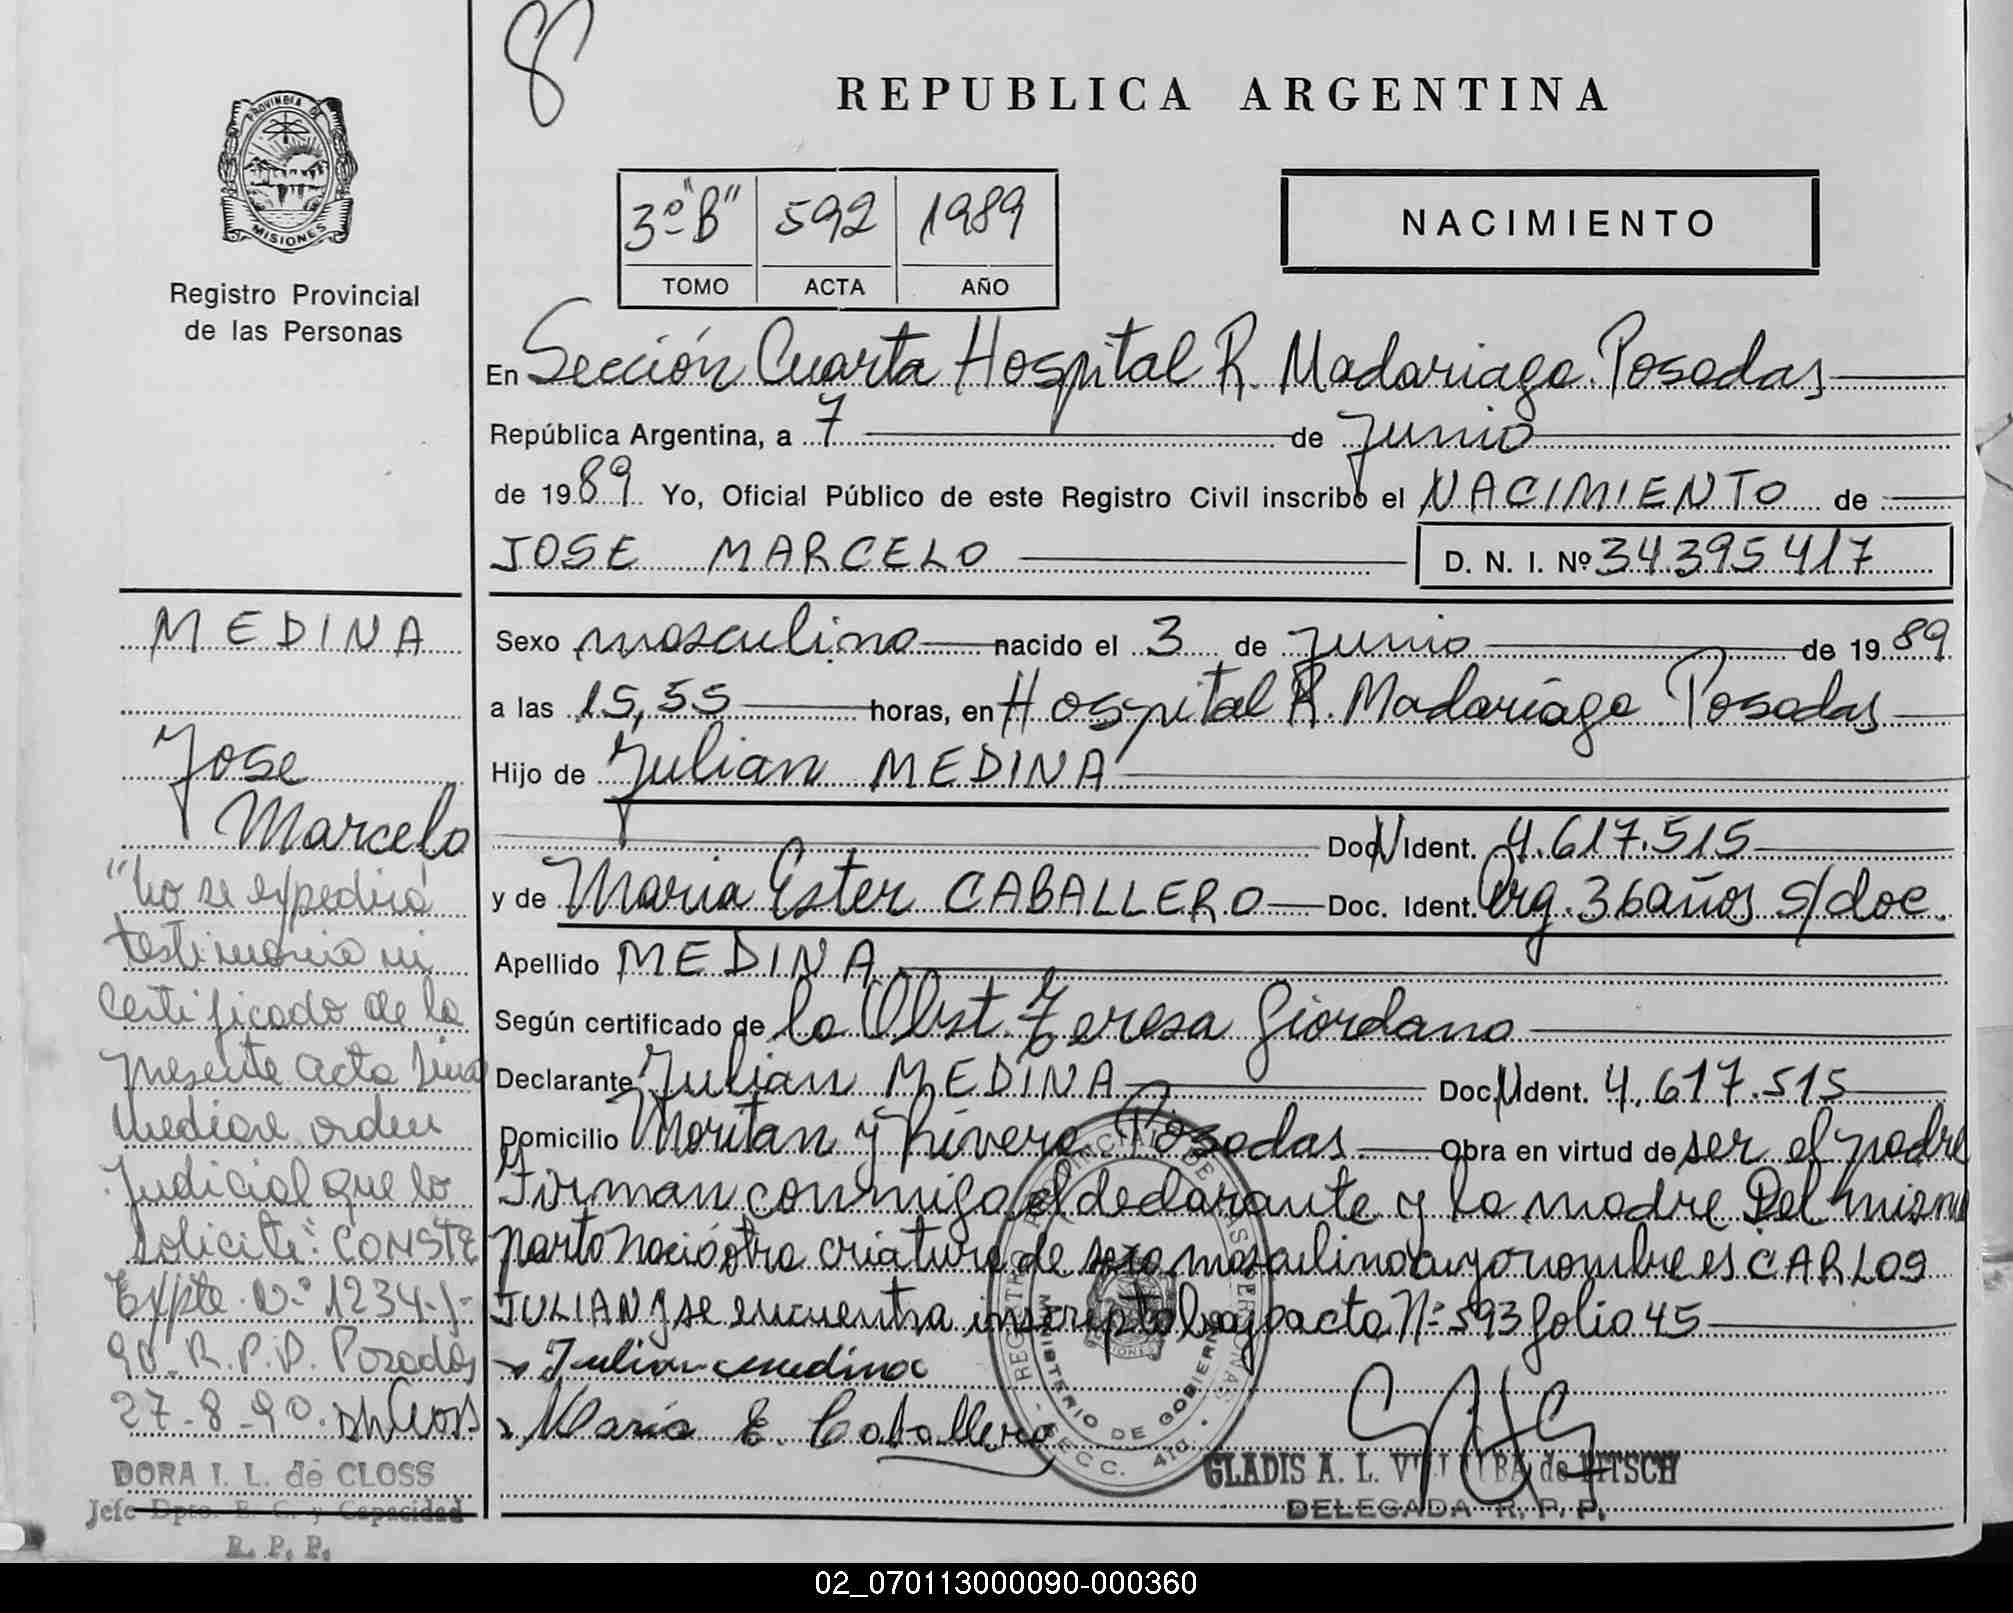 8
REPUBLICA ARGENTINA
PROVINCIA DE
MISIONES
Registro Provincial
de las Personas
3º "B" 592 1989
TOMO ACTA AÑO
NACIMIENTO
En Sección Cuarta Hospital R. Madariaga. Posadas
República Argentina, a 7 de Junio
de 1989 Yo, Oficial Público de este Registro Civil inscribo el NACIMIENTO de
JOSE MARCELO D. N. I. Nº 34395417
Sexo masculino nacido el 3 de Junio de 1989
a las 15,55 horas, en Hospital R. Madariaga Posadas
Hijo de Julian MEDINA
Doc. Ident. 4.617.515
y de Maria Ester CABALLERO Doc. Ident. Arg. 36 años s/doc.
Apellido MEDINA
Según certificado de la Obst. Teresa Giordano
Declarante Julian MEDINA Doc. Ident. 4.617.515
Domicilio Moritan y Rivero Posadas. Obra en virtud de ser el padre
Firman conmigo el declarante y la madre Del mismo
parto nació otra criatura de sexo masculino cuyo nombre es CARLOS
JULIAN y se encuentra inscripto bajo acta Nº 593 folio 45
Julian medina
Maria E. Caballero
GLADIS A. L. VILLALBA de PITSCH
DELEGADA R. P. P.
REGISTRO PROVINCIAL DE LAS PERSONAS
MINISTERIO DE GOBIERNO
SECC. 4ta.
MEDINA
Jose
Marcelo
"No se expedirá
testimonio ni
certificado de la
presente acta sino
mediare orden
Judicial que lo
solicite". CONSTE
Expte. Nº 1234-J-
90-R.P.P. Posadas
27-8-90.
DORA I. L. de CLOSS
Jefe Dpto. E. C. y Capacidad
R. P. P.
02_070113000090-000360